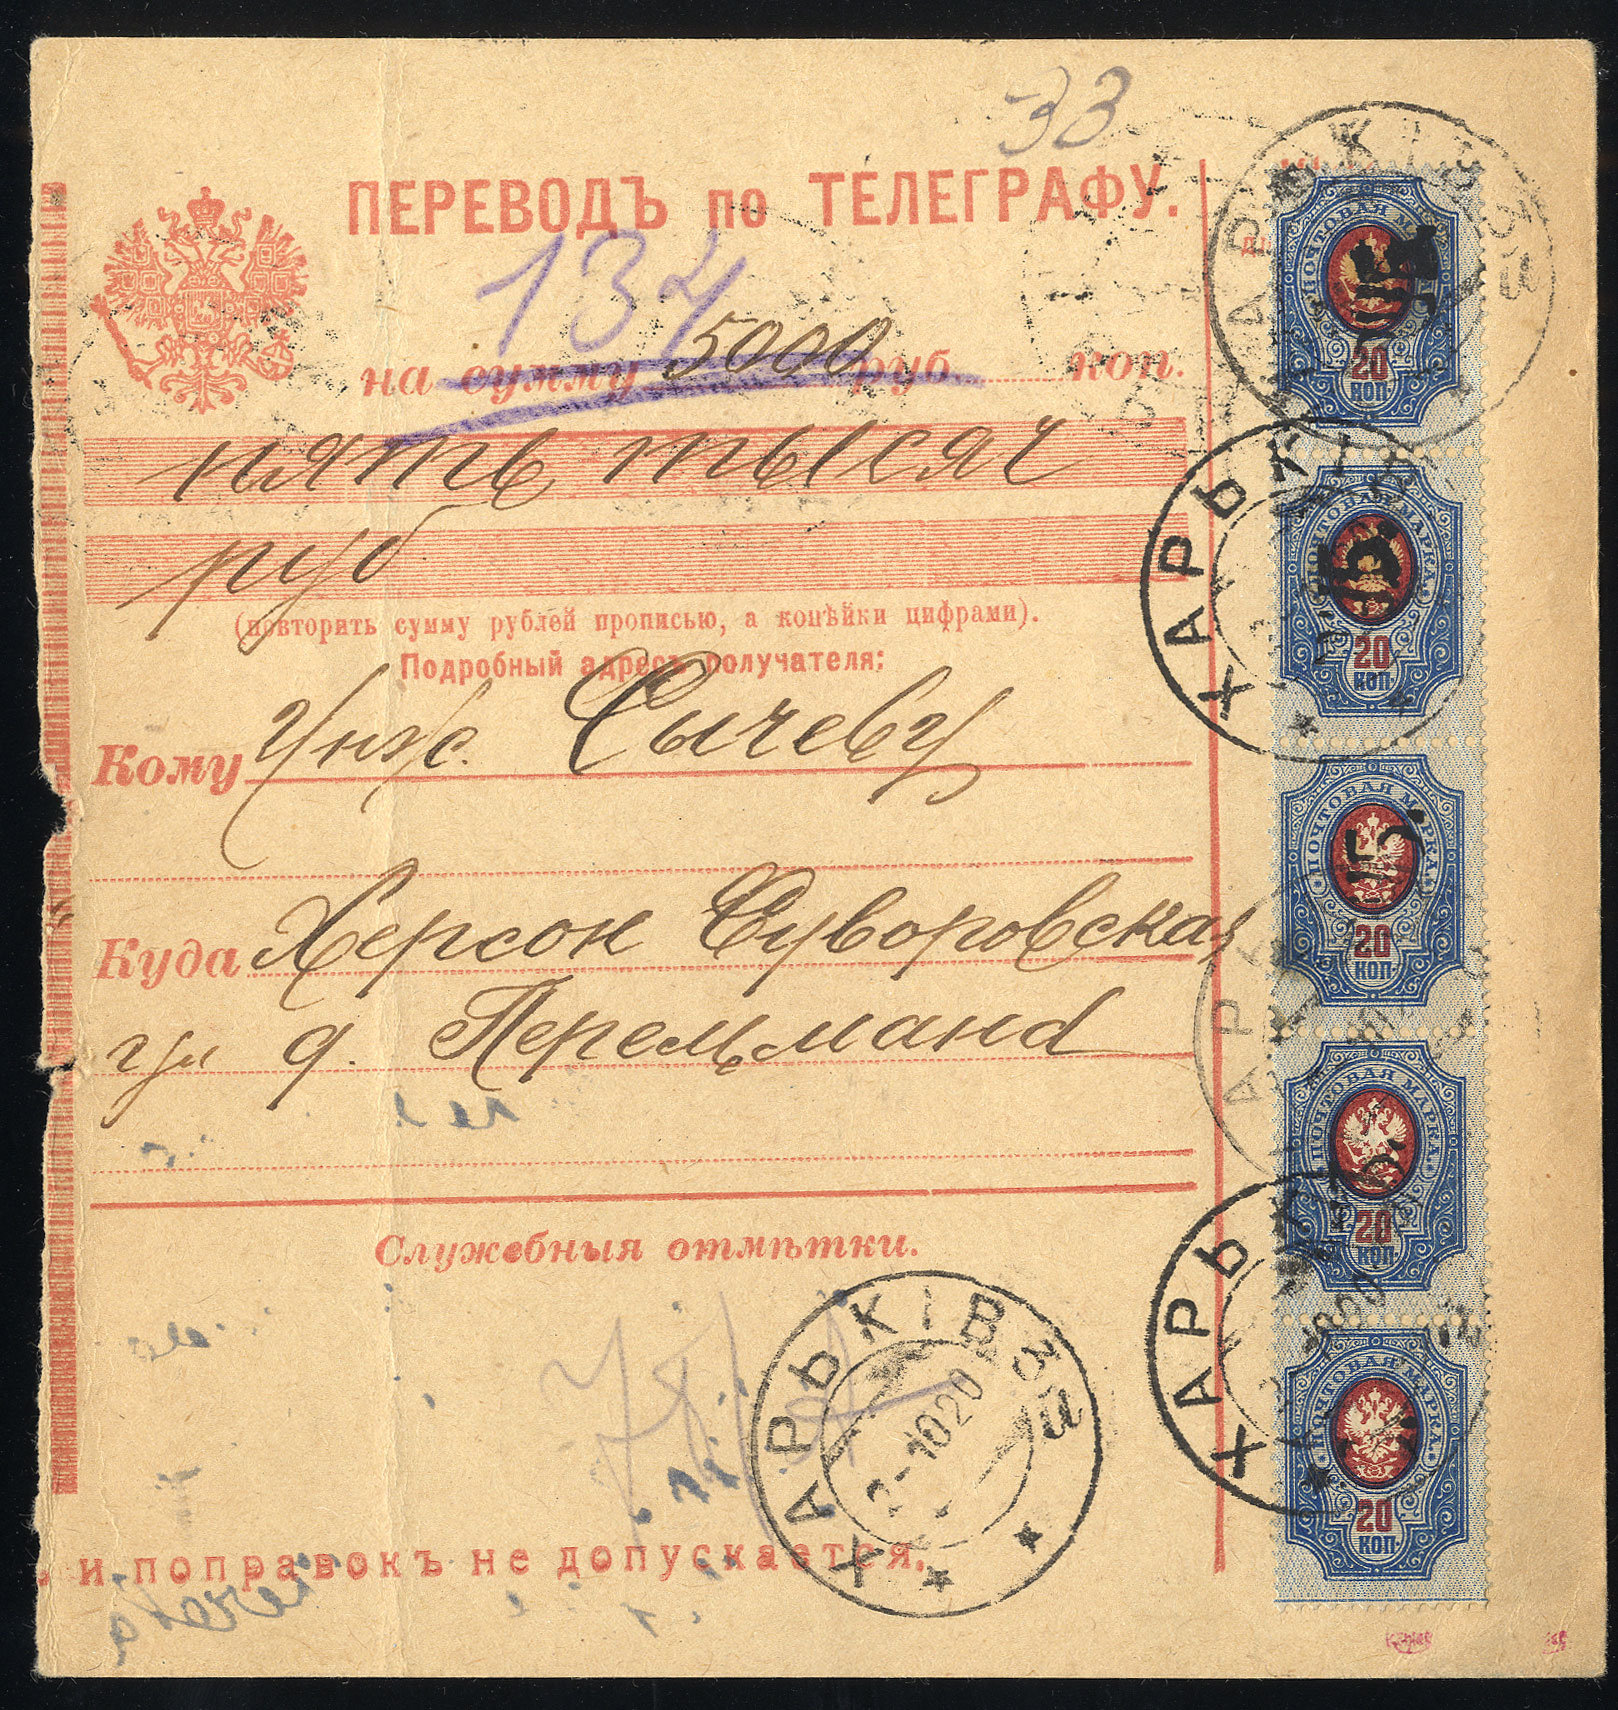 33
ПЕРЕВОДЪ по ТЕЛЕГРАФУ.
134
на сумму 5000 руб. коп.
пять тысяч
руб
(повторить сумму рублей прописью, а копѣйки цифрами).
Подробный адресъ получателя:
Кому Инж. Сычеву
Куда Херсон Суворовская
ул д. Перельмана
Служебныя отмѣтки.
ХАРЬКІВ 3й
2-1020
и поправокъ не допускается.
ХАРЬКІВ 3й
ПОЧТОВАЯ МАРКА
20 КОП
ХАРЬКІ
ПОЧТОВАЯ МАРКА
20 КОП
ПОЧТОВАЯ МАРКА
20 КОП
ПОЧТОВАЯ МАРКА
20 КОП
ХАРЬ
ПОЧТОВАЯ МАРКА
20 КОП